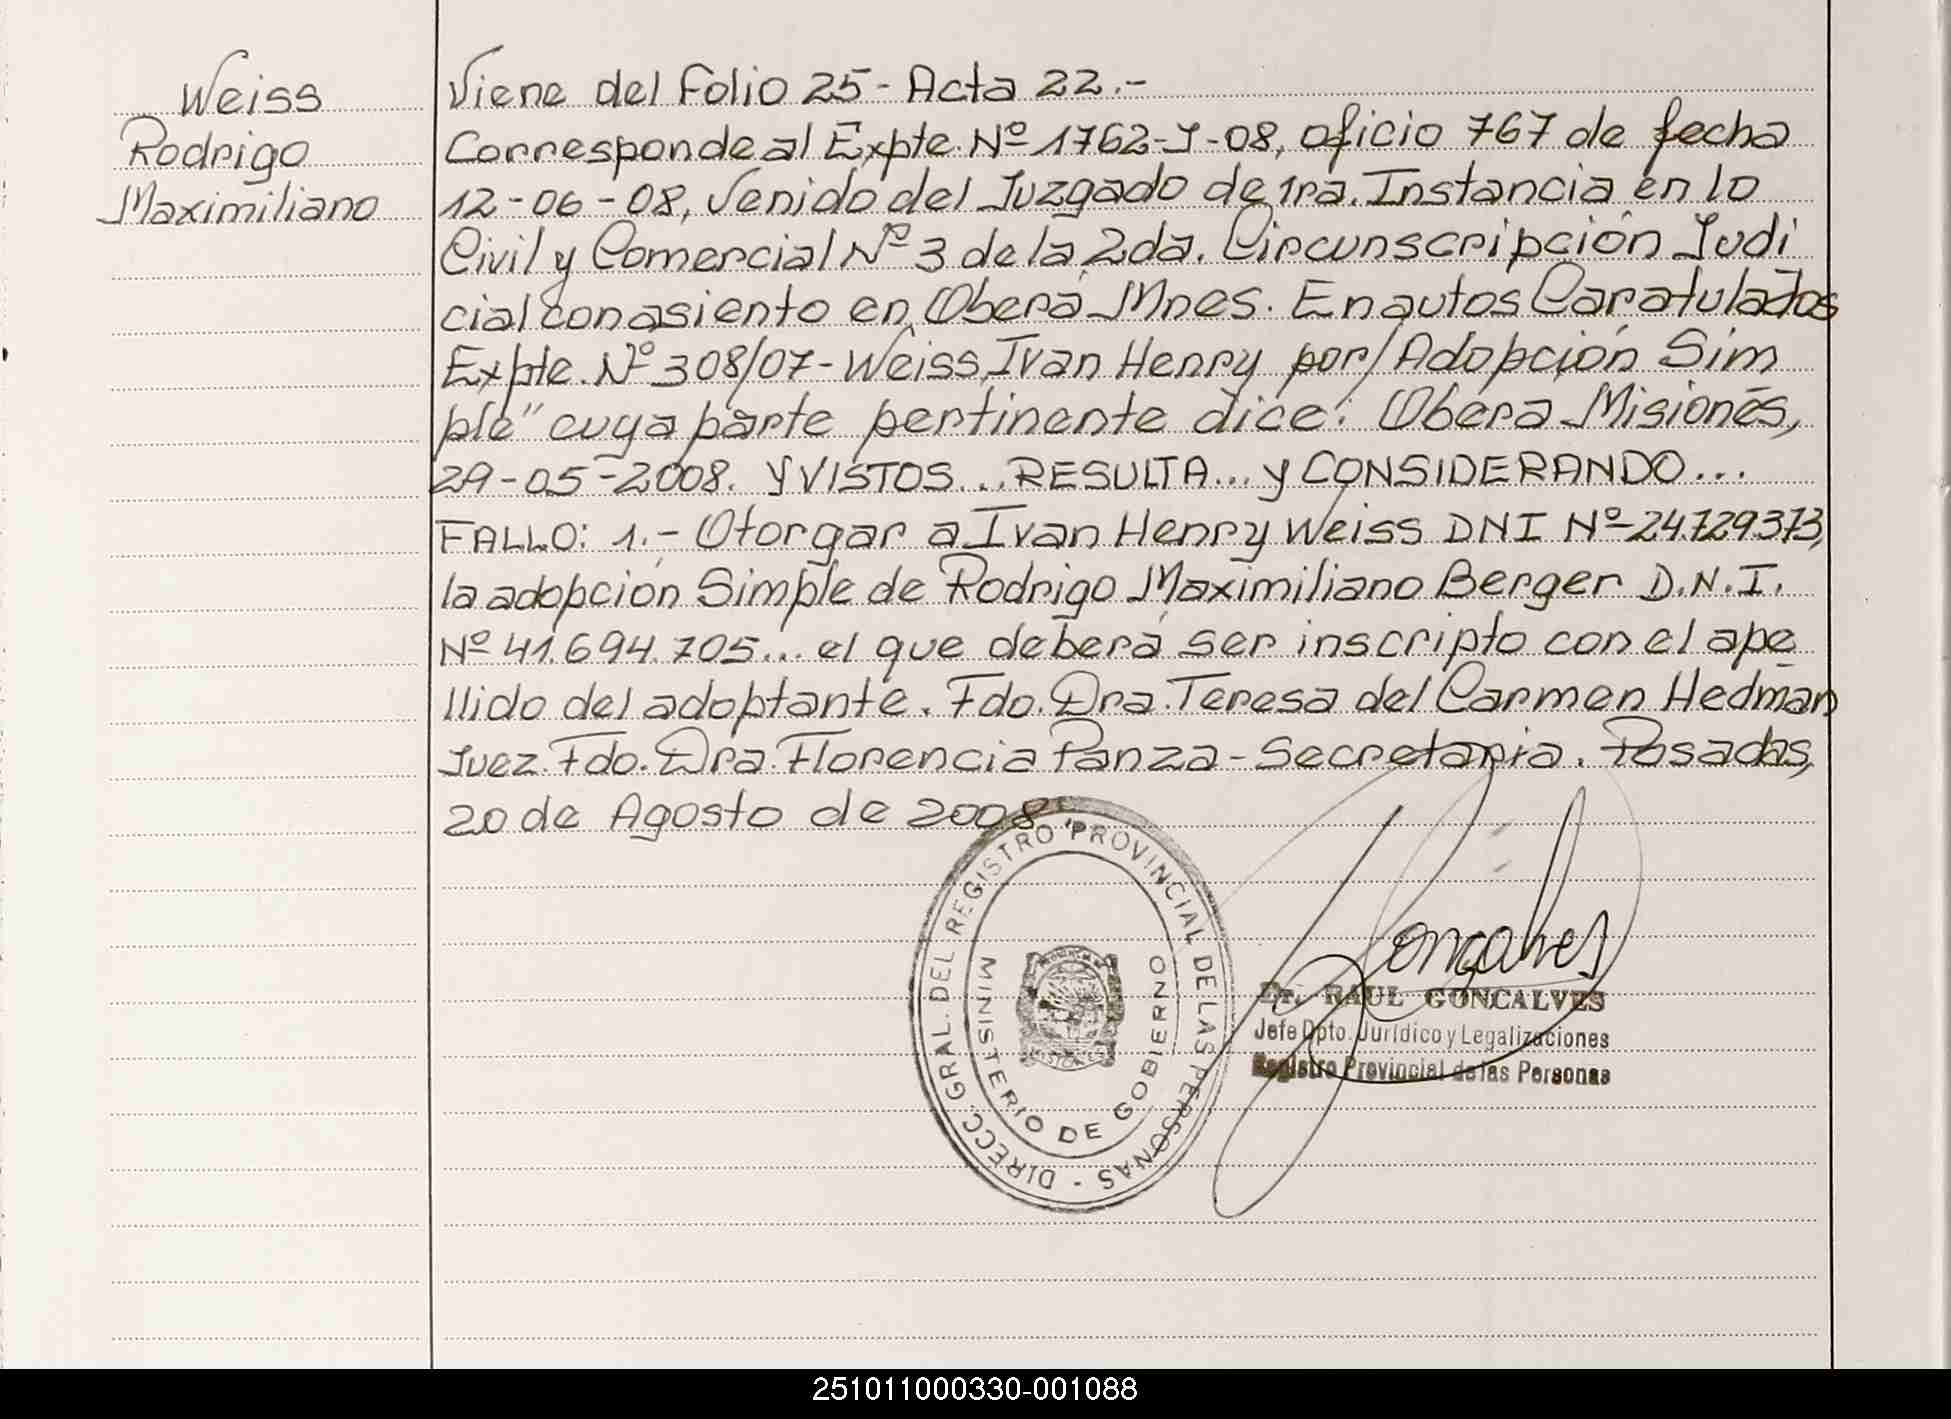 Weiss
Rodrigo
Maximiliano
Viene del Folio 25 - Acta 22.-
Corresponde al Expte. Nº 1762-J-08, oficio 767 de fecha
12-06-08, Venido del Juzgado de 1ra. Instancia en lo
Civil y Comercial Nº 3 de la 2da. Circunscripción Judi
cial con asiento en Oberá Mnes. En autos Caratulados
Expte. Nº 308/07-Weiss, Ivan Henry por/Adopción Sim
ple" cuya parte pertinente dice: Oberá Misiones,
29-05-2008. Y VISTOS...RESULTA...Y CONSIDERANDO...
FALLO: 1.- Otorgar a Ivan Henry Weiss DNI Nº 24.729.373,
la adopción Simple de Rodrigo Maximiliano Berger D.N.I.
Nº 41.694.705... el que deberá ser inscripto con el ape
llido del adoptante. Fdo. Dra. Teresa del Carmen Hedman
Juez. Fdo. Dra. Florencia Panza - Secretaria. Posadas,
20 de Agosto de 2008
DIRECC. GRAL. DEL REGISTRO PROVINCIAL DE LAS PERSONAS -
MINISTERIO DE GOBIERNO
MISIONES
Gonçalves
Dr. RAUL GONCALVES
Jefe Dpto. Jurídico y Legalizaciones
Registro Provincial de las Personas
251011000330-001088